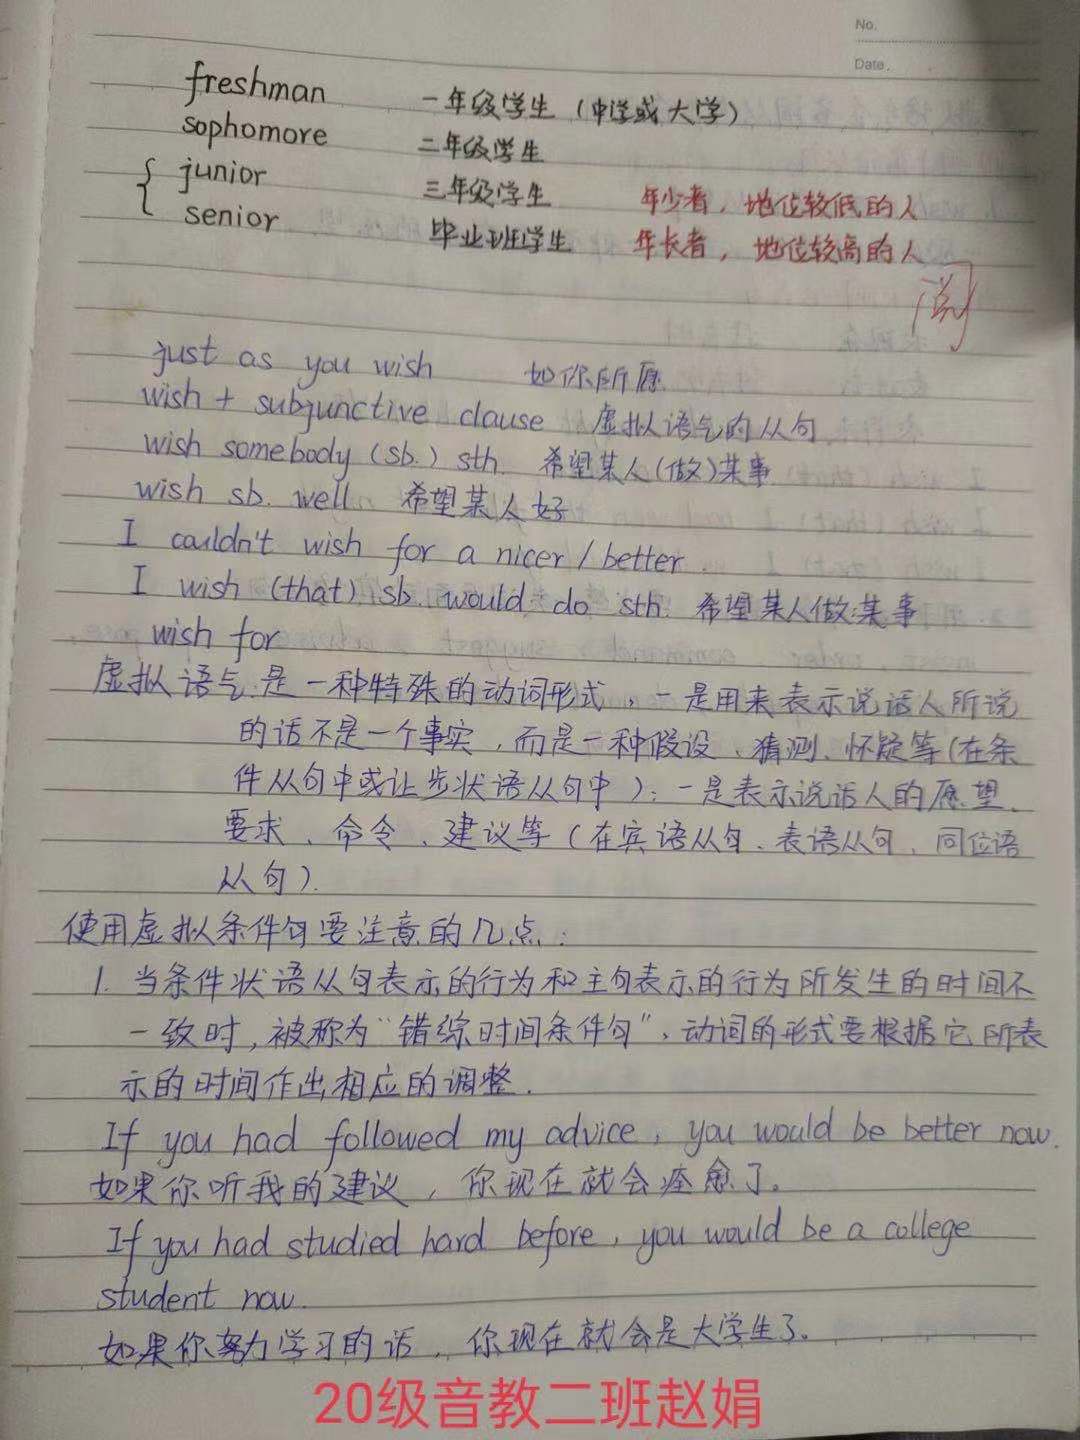 No.
Date.
freshman 一年级学生（中学或大学）
sophomore 二年级学生
junior 三年级学生 年少者，地位较低的人
senior 毕业班学生 年长者，地位较高的人
阅
just as you wish 如你所愿
wish + subjunctive clause 虚拟语气的从句
wish somebody (sb.) sth. 希望某人(做)某事
wish sb. well 希望某人好
I couldn't wish for a nicer / better
I wish (that) sb. would do sth. 希望某人做某事
wish for
虚拟语气是一种特殊的动词形式，一是用来表示说话人所说
的话不是一个事实，而是一种假设、猜测、怀疑等(在条
件从句中或让步状语从句中)；一是表示说话人的愿望、
要求、命令、建议等(在宾语从句、表语从句、同位语
从句).
使用虚拟条件句要注意的几点：
1. 当条件状语从句表示的行为和主句表示的行为所发生的时间不
一致时，被称为“错综时间条件句”，动词的形式要根据它所表
示的时间作出相应的调整.
If you had followed my advice, you would be better now.
如果你听我的建议，你现在就会痊愈了。
If you had studied hard before, you would be a college
student now.
如果你努力学习的话，你现在就会是大学生了。
20级音教二班赵娟